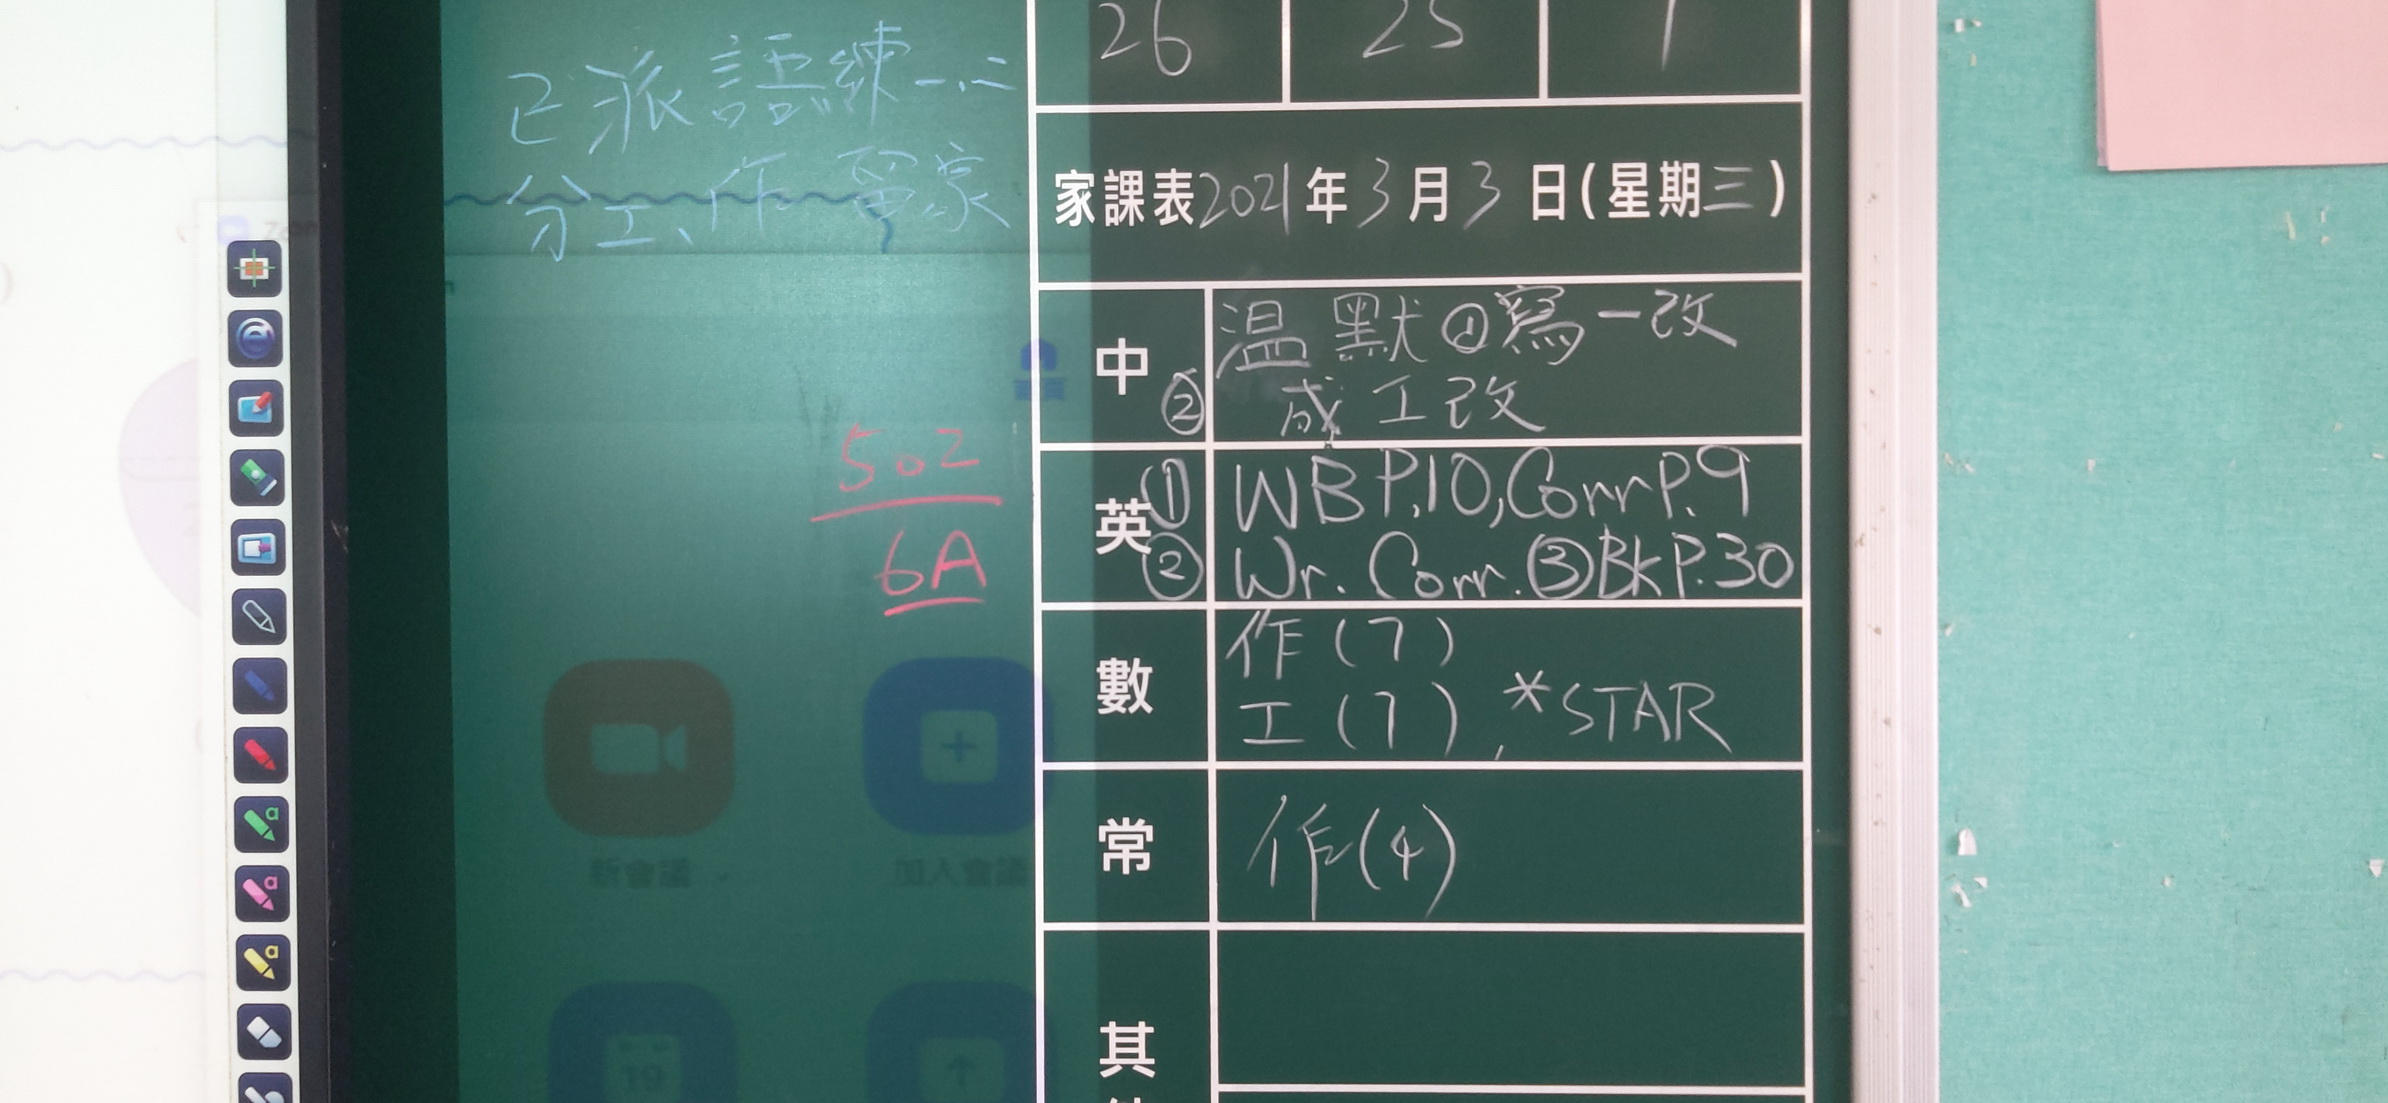 已派語練一.二
分工、作 留家
26 25 1
家課表2021年3月3日(星期三)
中 溫 默①寫一改
② 成工改
英 ① WB P.10, Corr P.9
② Wr. Corr. ③Bk P.30
502
6A
數 作(7)
工(7), *STAR
常 作(4)
其
新會議
加入會議
19